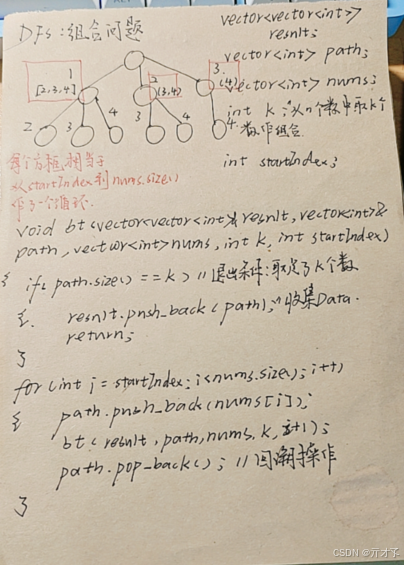 DFS:组合问题
vector<vector<int>>
result;
vector<int> path;
vector<int> nums;
int k; 从n个数中取k个
数作组合
int startIndex;
1
[2,3,4]
2
(3,4)
3.
(4)
2
3
4
3
4
4
每个方框相当于
从startIndex到nums.size()
作了一个循环.
void bt(vector<vector<int>& result, vector<int>&
path, vector<int> nums, int k, int startIndex)
{ if( path.size() == k ) //退出条件:取完了k个数
{. result.push_back(path); //收集Data.
return;
}
for(int i = startIndex; i<nums.size(); i++)
{ path.push_back(nums[i]);
bt( result, path, nums, k, i+1);
path.pop_back(); //回溯操作
}
CSDN @亓才孓